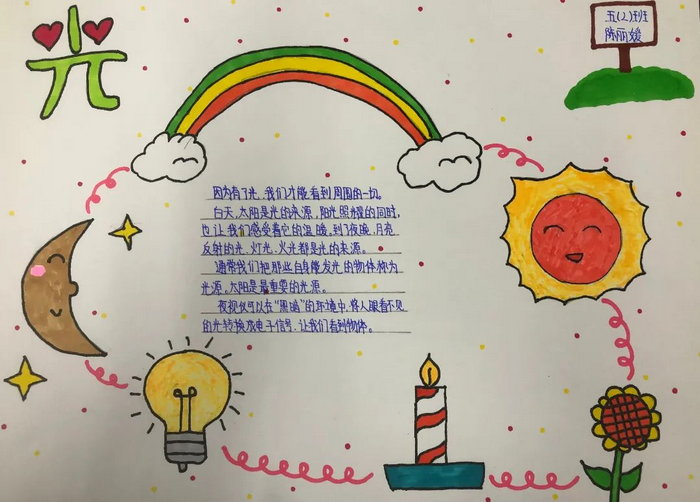 光
五(2)班
陈丽媛
因为有了光,我们才能看到周围的一切。
白天,太阳是光的来源,阳光照耀的同时,
也让我们感受着它的温暖,到了夜晚,月亮
反射的光、灯光、火光都是光的来源。
通常我们把那些自身能发光的物体称为
光源。太阳是最重要的光源。
夜视仪可以在“黑暗”的环境中,将人眼看不见
的光转换成电子信号,让我们看到物体。